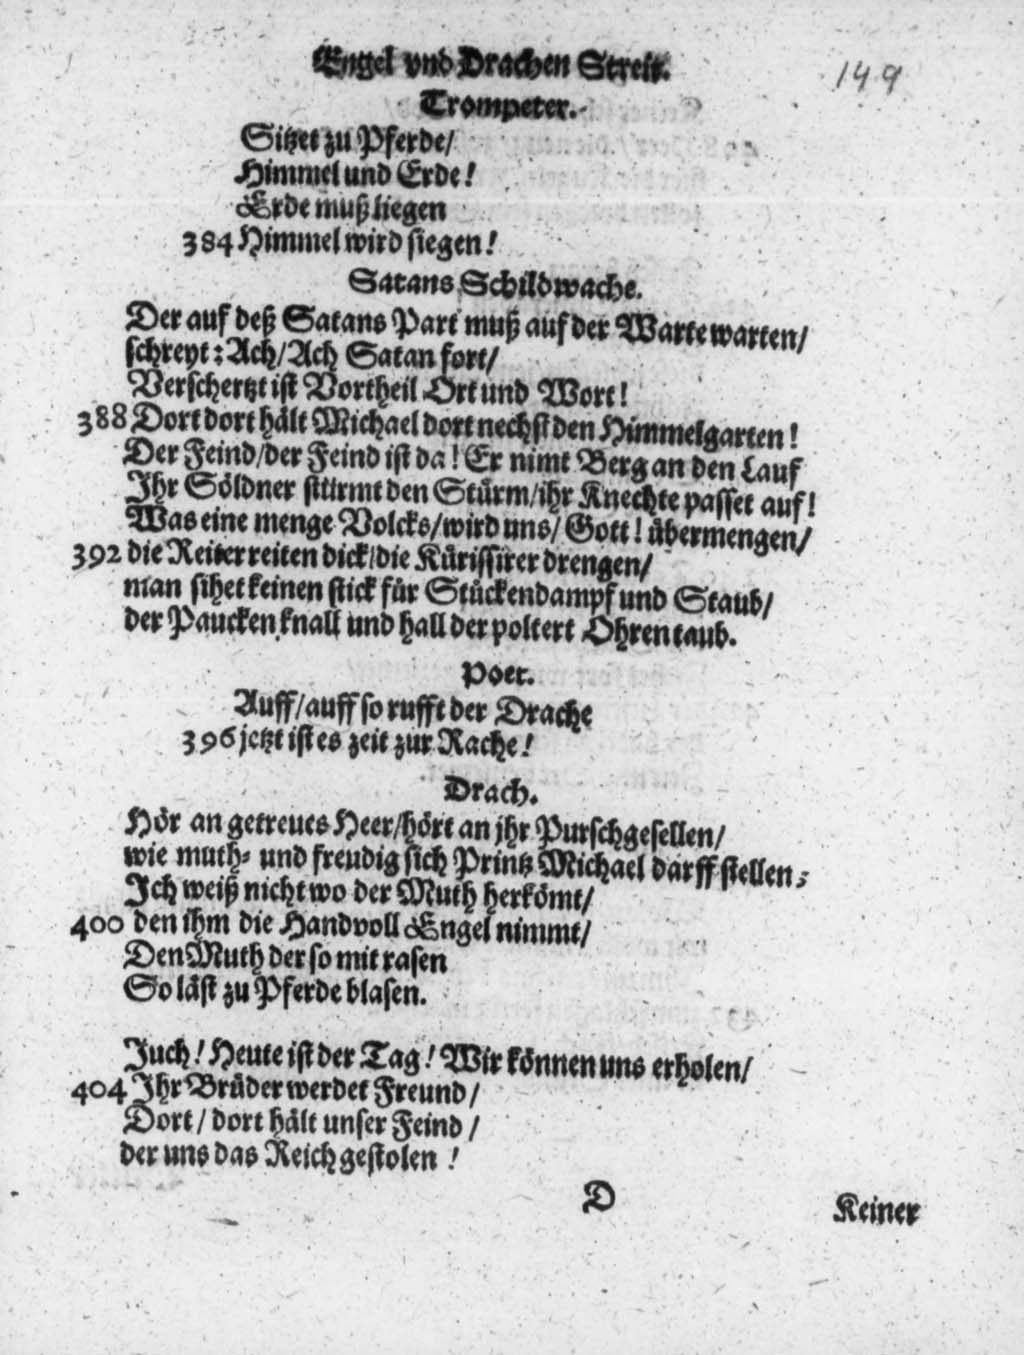 Engel vnd Drachen Streit.
149
Trompeter.
Sitzet zu Pferde/
Himmel und Erde!
Erde muß liegen
384 Himmel wird siegen!
Satans Schildwache.
Der auf deß Satans Part muß auf der Warte warten/
schreyt: Ach/Ach Satan fort/
Verschertzt ist Vortheil Ort und Wort!
388 Dort dort hält Michael dort nechst den Himmelgarten!
Der Feind/der Feind ist da! Er nimt Berg an den Lauf
Ihr Söldner stürmt den Stürm/ihr Knechte passet auf!
Was eine menge Volcks/wird uns/Gott! übermengen/
392 die Reiter reiten dick/die Kürissirer drengen/
man sihet keinen stick für Stückendampf und Staub/
der Paucken knall und hall der poltert Ohren taub.
Poet.
Auff/auff so rufft der Drache
396 jetzt ist es zeit zur Rache!
Drach.
Hör an getreues Heer/hört an jhr Purschgesellen/
wie muth- und freudig sich Printz Michael darff stellen;
Ich weiß nicht wo der Muth herkömt/
400 den ihm die Handvoll Engel nimmt/
Den Muth der so mit rasen
So läst zu Pferde blasen.
Juch! Heute ist der Tag! Wir können uns erholen/
404 Ihr Brüder werdet Freund/
Dort/dort hält unser Feind/
der uns das Reich gestolen!
D
Keiner